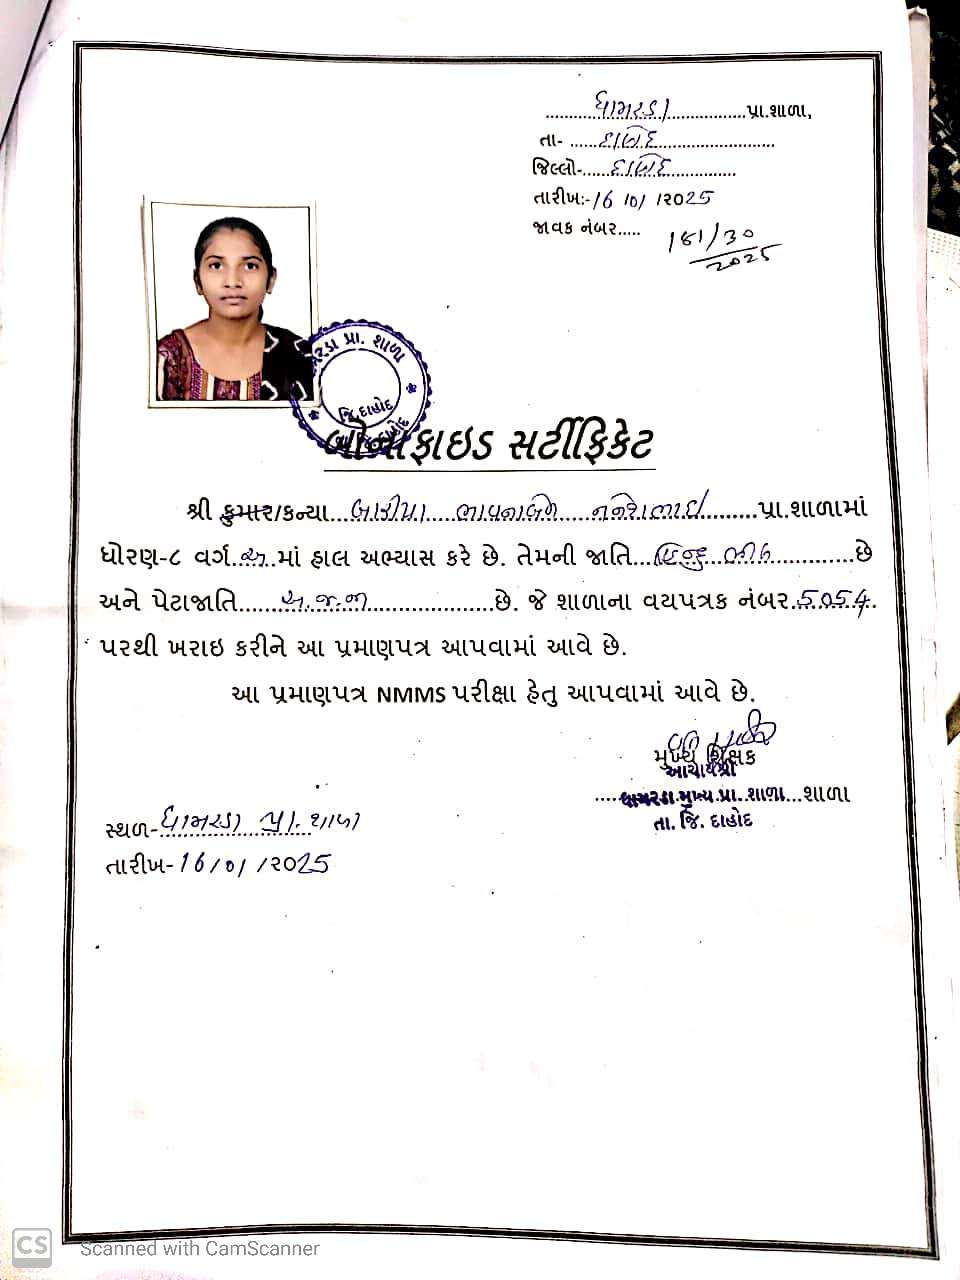 ધામરડા પ્રા.શાળા,
તા- દાહોદ
જિલ્લો- દાહોદ
તારીખ:- 16/01/2025
જાવક નંબર..... 181/30
2025
પ્રા. શાળા
જિ.દાહોદ
બોનાફાઇડ સર્ટીફિકેટ
શ્રી કુમાર/કન્યા બારીયા ભાવનાબેન પ્રા.શાળામાં
ધોરણ-૮ વર્ગ અ માં હાલ અભ્યાસ કરે છે. તેમની જાતિ હિન્દુ ભીલ છે
અને પેટાજાતિ અ.જ.જા છે. જે શાળાના વયપત્રક નંબર 5054
પરથી ખરાઇ કરીને આ પ્રમાણપત્ર આપવામાં આવે છે.
આ પ્રમાણપત્ર NMMS પરીક્ષા હેતુ આપવામાં આવે છે.
મુખ્ય શિક્ષક
આચાર્યશ્રી
ધામરડા મુખ્ય પ્રા. શાળા શાળા
તા. જિ. દાહોદ
સ્થળ- ધામરડા પ્રા. શાળા
તારીખ- 16/01/2025
CS Scanned with CamScanner